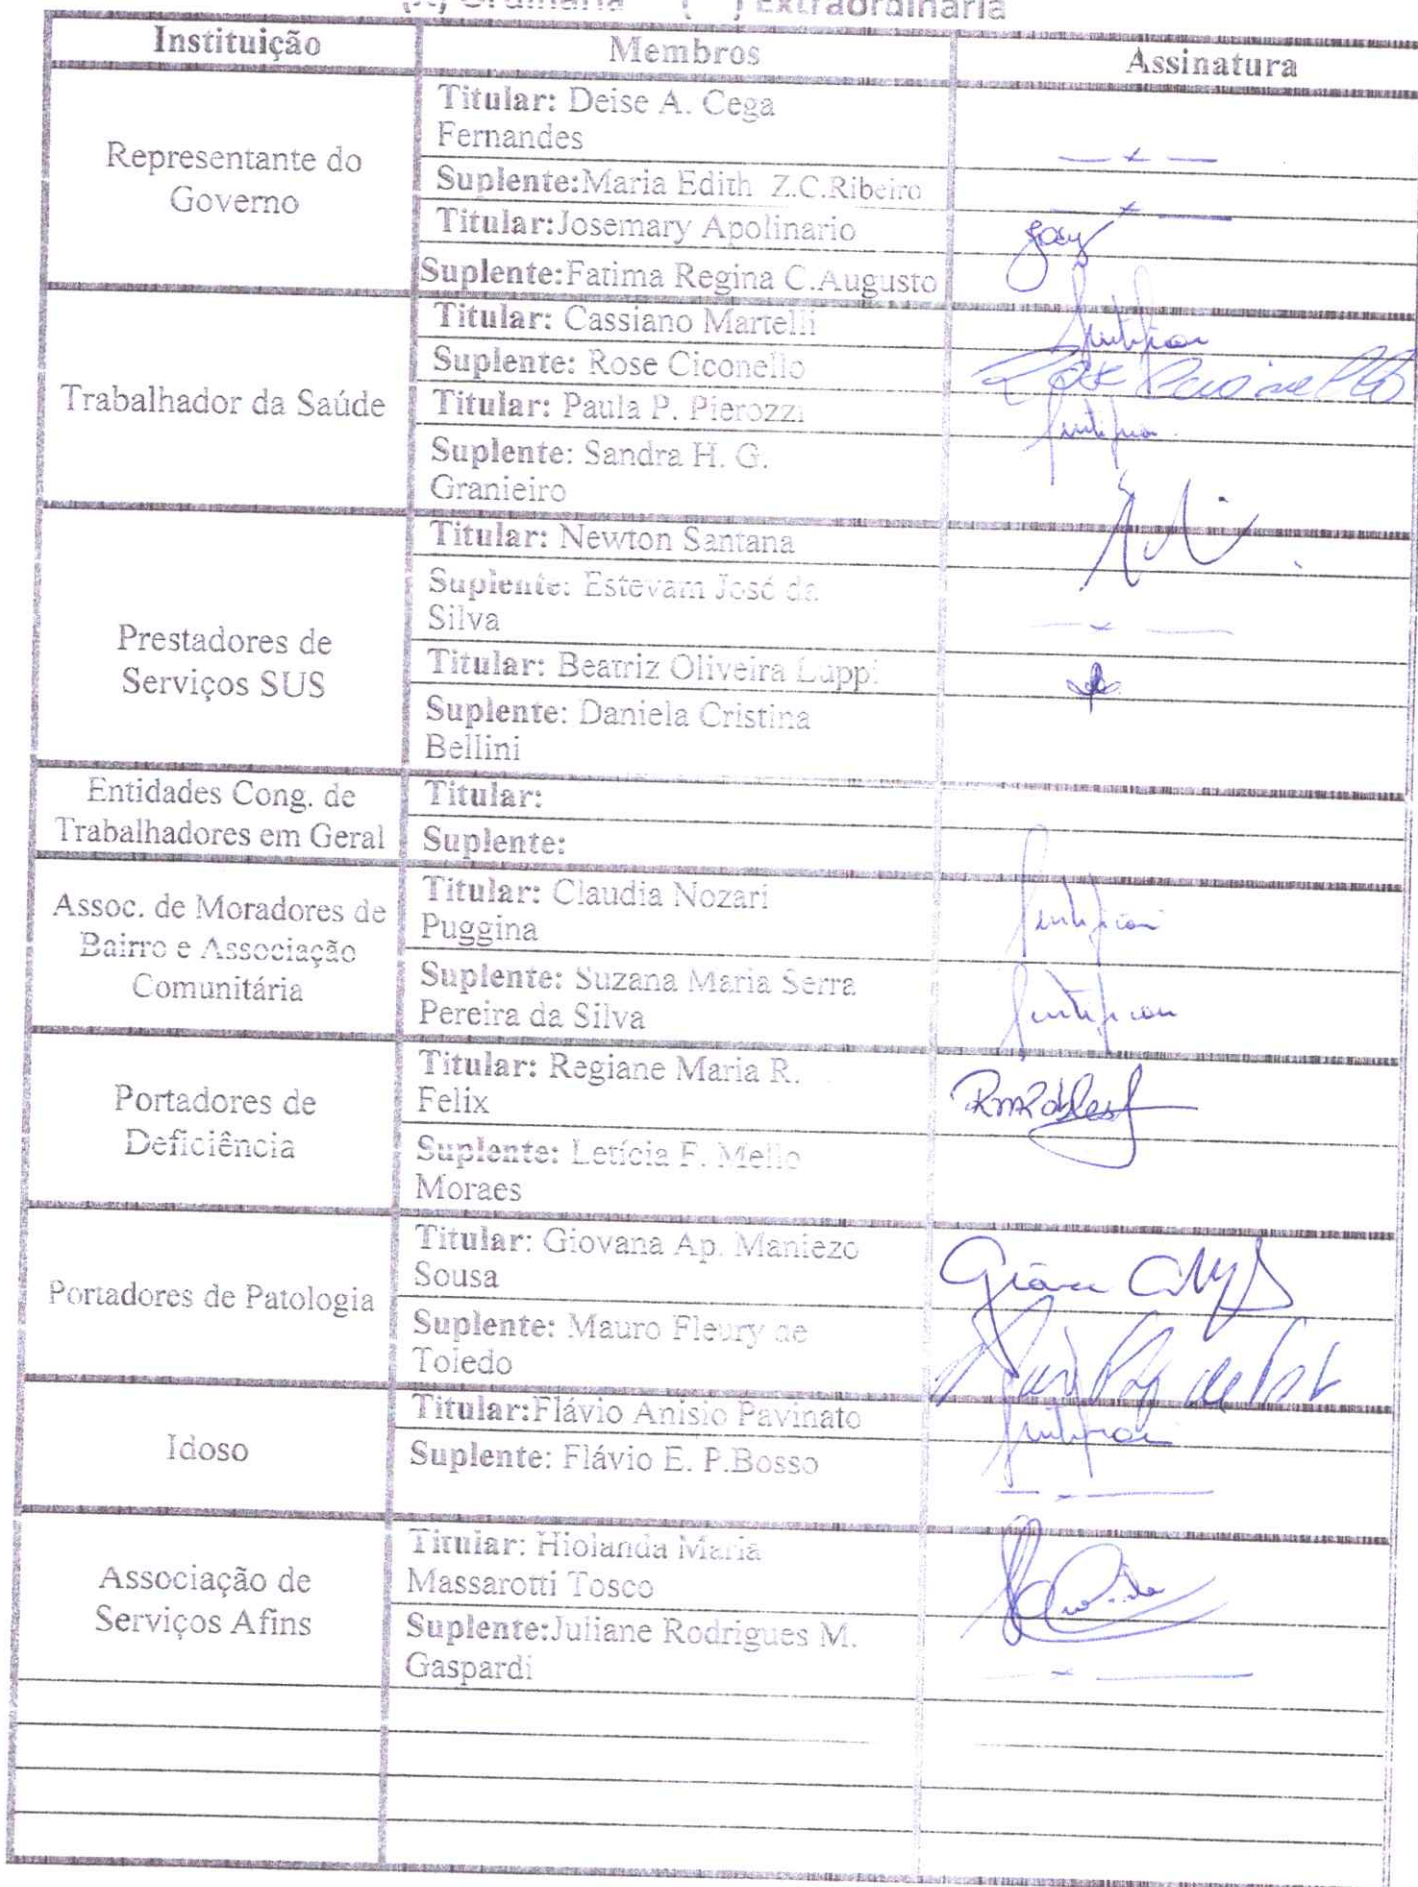 (x) Ordinária ( ) Extraordinária
Instituição Membros Assinatura
Representante do
Governo
Titular: Deise A. Cega
Fernandes
— x —
Suplente:Maria Edith Z.C.Ribeiro
— x —
Titular:Josemary Apolinario
Suplente:Fatima Regina C.Augusto
Trabalhador da Saúde
Titular: Cassiano Martelli
Suplente: Rose Ciconello
Titular: Paula P. Pierozzi
Suplente: Sandra H. G.
Granieiro
Prestadores de
Serviços SUS
Titular: Newton Santana
Suplente: Estevam José da
Silva
Titular: Beatriz Oliveira Luppi
Suplente: Daniela Cristina
Bellini
Entidades Cong. de
Trabalhadores em Geral
Titular:
Suplente:
Assoc. de Moradores de
Bairro e Associação
Comunitária
Titular: Claudia Nozari
Puggina
Suplente: Suzana Maria Serra
Pereira da Silva
Portadores de
Deficiência
Titular: Regiane Maria R.
Felix
Suplente: Letícia F. Mello
Moraes
Portadores de Patologia
Titular: Giovana Ap. Maniezo
Sousa
Suplente: Mauro Fleury de
Toledo
Idoso
Titular:Flávio Anisio Pavinato
Suplente: Flávio E. P.Bosso
Associação de
Serviços Afins
Titular: Hiolanda Maria
Massarotti Tosco
Suplente:Juliane Rodrigues M.
Gaspardi